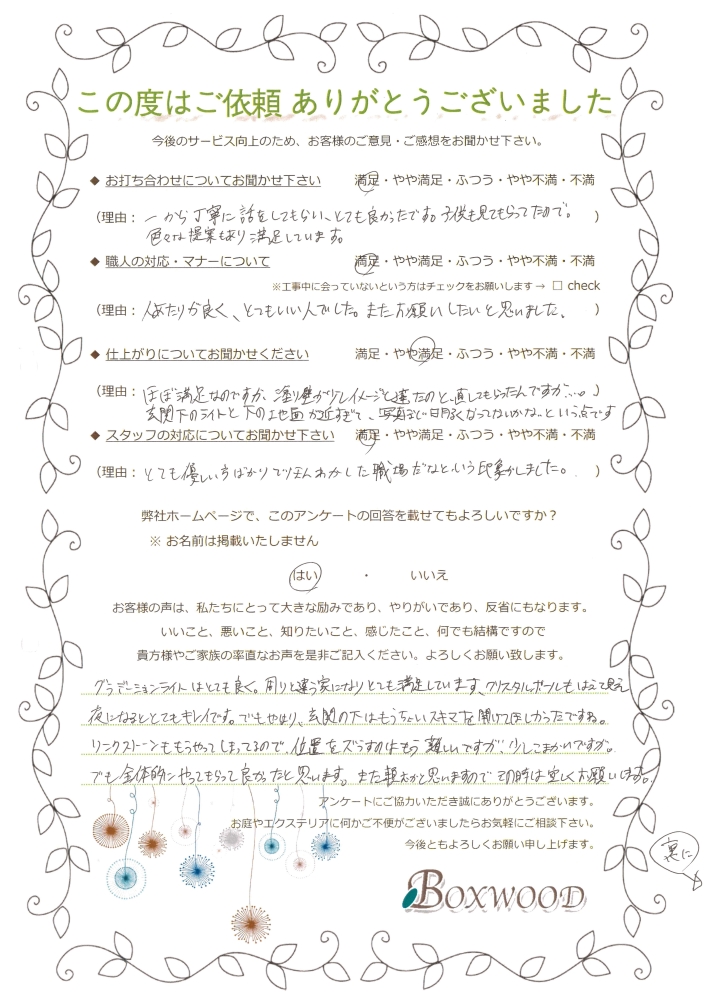 この度はご依頼 ありがとうございました
今後のサービス向上のため、お客様のご意見・ご感想をお聞かせ下さい。
◆ お打ち合わせについてお聞かせ下さい 満足・やや満足・ふつう・やや不満・不満
(理由： 一から丁寧に話をしてもらい、とても良かったです。子供も見てもらってたので。 )
色々な提案もあり満足しています。
◆ 職人の対応・マナーについて 満足・やや満足・ふつう・やや不満・不満
※工事中に会っていないという方はチェックをお願いします→ □ check
(理由： 人あたりが良く、とてもいい人でした。またお願いしたいと思いました。 )
◆ 仕上がりについてお聞かせください 満足・やや満足・ふつう・やや不満・不満
(理由： ほぼ満足なのですが、塗り壁が少しイメージと違たのと、直してもらったんですが…。)
玄関下のライトと下の地面が近すぎて、写真ほど明るくなってないかな、という点です
◆ スタッフの対応についてお聞かせ下さい 満足・やや満足・ふつう・やや不満・不満
(理由： とても優しい方ばかりでほんわかした職場だなという印象がしました。 )
弊社ホームページで、このアンケートの回答を載せてもよろしいですか？
※ お名前は掲載いたしません
はい ・ いいえ
お客様の声は、私たちにとって大きな励みであり、やりがいであり、反省にもなります。
いいこと、悪いこと、知りたいこと、感じたこと、何でも結構ですので
貴方様やご家族の率直なお声を是非ご記入ください。よろしくお願い致します。
グラデーションライトはとても良く。周りと違う家になりとても満足しています、クリスタルボールもはえて見え
夜になるととてもキレイです。でもやはり、玄関の下はもうちょいスキマを開けてほしかったですね。
リンクストーンももうやってしまってるので、位置をズラすのはもう難しいですが、少しこまかいですが。
でも全体的にやってもらって良かったと思います。また頼むかと思いますのでその時は宜しくお願いします。
アンケートにご協力いただき誠にありがとうございます。
お庭やエクステリアに何かご不便がございましたらお気軽にご相談下さい。
今後ともよろしくお願い申し上げます。
裏に
BOXWOOD